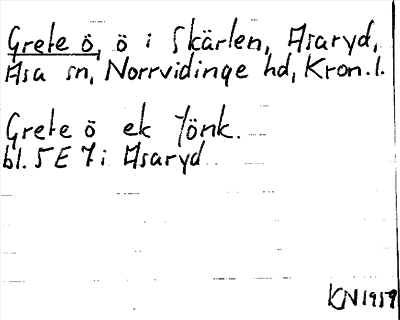 Grete ö, ö i Skärlen, Asaryd,
Asa sn, Norrvidinge hd, Kron.l.
Grete ö ek Jönk.
bl. 5 E 7 i Asaryd
KN 1959